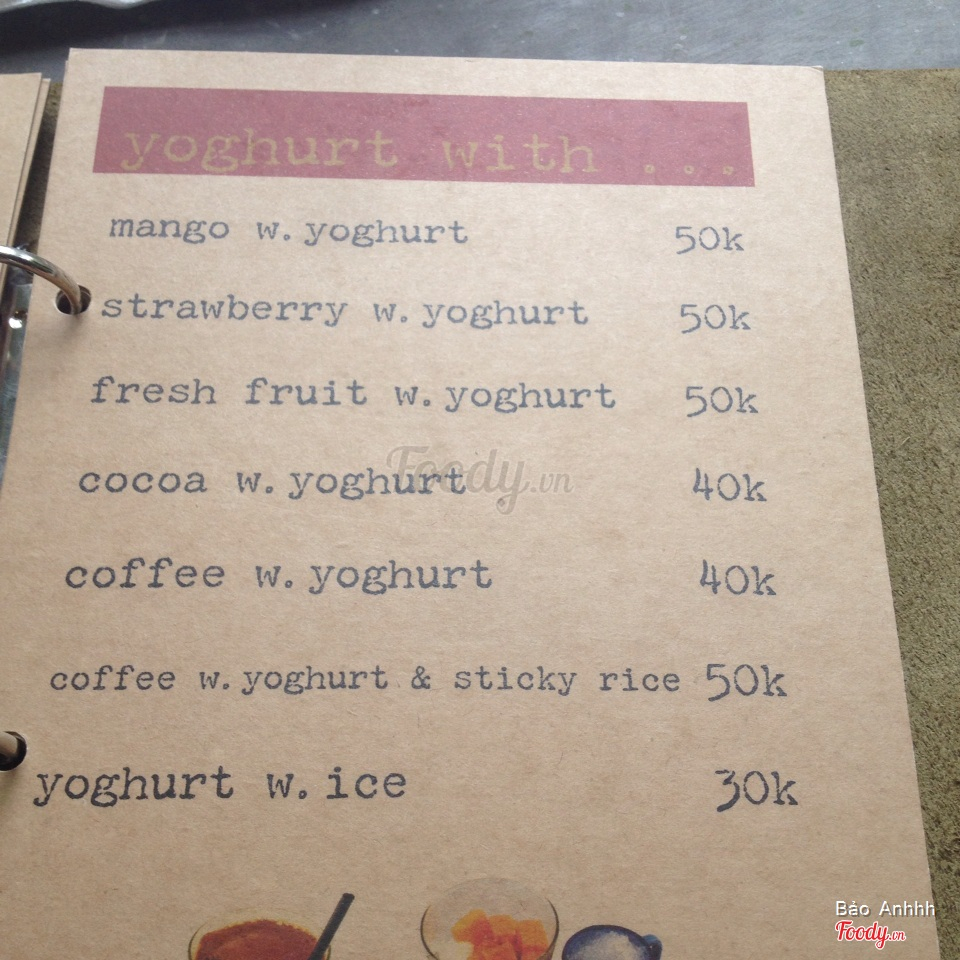 yoghurt with ...
mango w. yoghurt 50k
strawberry w. yoghurt 50k
fresh fruit w. yoghurt 50k
cocoa w. yoghurt 40k
Foody.vn
coffee w. yoghurt 40k
coffee w. yoghurt & sticky rice 50k
yoghurt w. ice 30k
Bảo Anhhh
Foody.vn